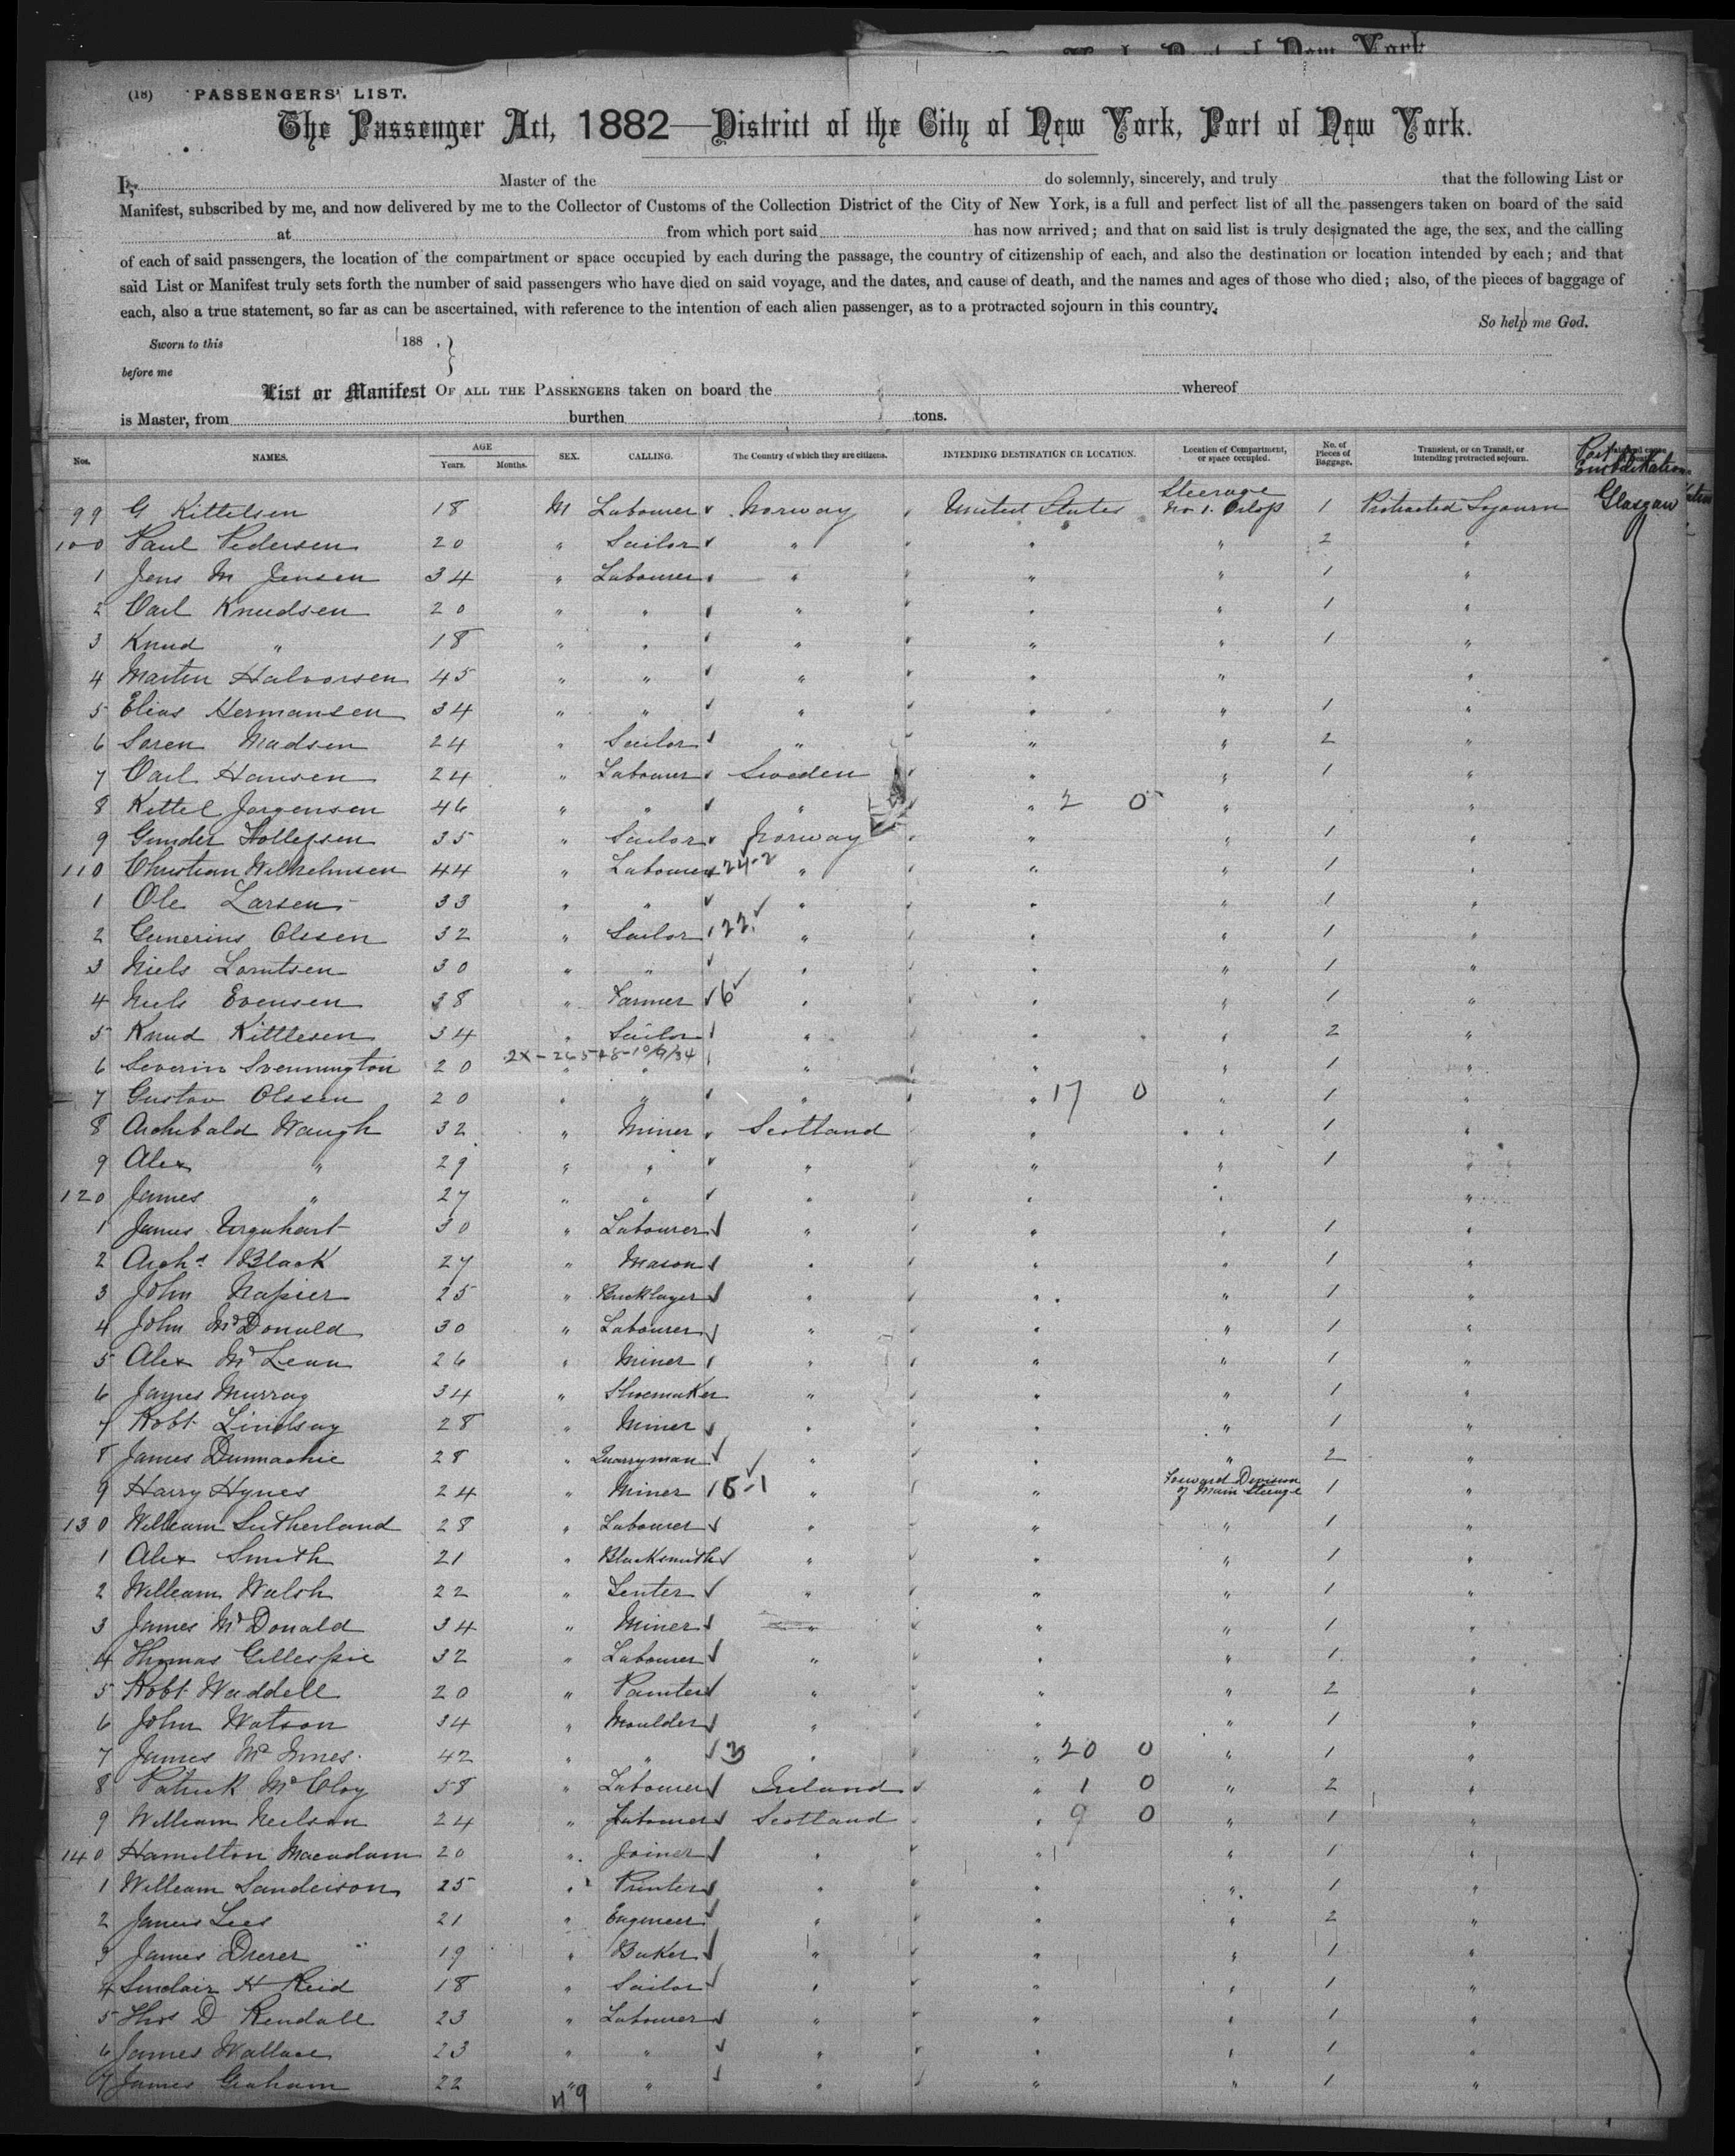 Port of New York
(18) PASSENGERS' LIST.
The Passenger Act, 1882—District of the City of New York, Port of New York.
I, Master of the do solemnly, sincerely, and truly that the following List or
Manifest, subscribed by me, and now delivered by me to the Collector of Customs of the Collection District of the City of New York, is a full and perfect list of all the passengers taken on board of the said
at from which port said has now arrived; and that on said list is truly designated the age, the sex, and the calling
of each of said passengers, the location of the compartment or space occupied by each during the passage, the country of citizenship of each, and also the destination or location intended by each; and that
said List or Manifest truly sets forth the number of said passengers who have died on said voyage, and the dates, and cause of death, and the names and ages of those who died; also, of the pieces of baggage of
each, also a true statement, so far as can be ascertained, with reference to the intention of each alien passenger, as to a protracted sojourn in this country.
So help me God.
Sworn to this 188 .
before me
List or Manifest OF ALL THE PASSENGERS taken on board the whereof
is Master, from burthen tons.
Nos. NAMES. AGE Years. Months. SEX. CALLING. The Country of which they are citizens. INTENDING DESTINATION OR LOCATION. Location of Compartment, or space occupied. No. of Pieces of Baggage. Transient, or on Transit, or intending protracted sojourn. Port Embarkation
99 G Kittelsen 18 M Labourer Norway United States Steerage No 1. Orlop 1 Protracted Sojourn Glasgow
100 Paul Pedersen 20 " Sailor " " " 2 "
1 Jens M Jensen 34 " Labourer " " " 1 "
2 Carl Knudsen 20 " " " " " 1 "
3 Knud " 18 " " " " " 1 "
4 Martin Halvorsen 45 " " " " " "
5 Elias Hermansen 34 " " " " " 1 "
6 Soren Madsen 24 " Sailor " " " 2 "
7 Carl Hansen 24 " Labourer Sweden " " 1 "
8 Kittel Jorgensen 46 " " " " 2 0 " "
9 Gunder Tollefsen 35 " Sailor Norway " " 1 "
110 Christian Wilhelmsen 44 " Labourer 24-2 " " " 1 "
1 Ole Larsen 33 " " " " " 1 "
2 Gunerius Olssen 32 " Sailor 22 " " " 1 "
3 Niels Lorntsen 30 " " " " " 1 "
4 Niels Evensen 38 " Farmer 6 " " " 1 "
5 Knud Kittlesen 34 " Sailor " " " 2 "
6 Severin Svennington 20 " " " " " 1 "
7 Gustav Olssen 20 " " " " 17 0 " 1 "
8 Archibald Waugh 32 " Miner Scotland " " 1 "
9 Alex " 29 " " " " " 1 "
120 James " 27 " " " " " "
1 James Urquhart 30 " Labourer " " " 1 "
2 Archd Black 27 " Mason " " " 1 "
3 John Napier 25 " Bricklayer " " " 1 "
4 John McDonald 30 " Labourer " " " 1 "
5 Alex McLean 26 " Miner " " " 1 "
6 James Murray 34 " Shoemaker " " " 1 "
7 Robt Lindsay 28 " Miner " " " 1 "
8 James Dunnachie 28 " Quarryman " " " 2 "
9 Harry Hynes 24 " Miner 15-1 " " Forward Division of Main Steerage 1 "
130 William Sutherland 28 " Labourer " " " 1 "
1 Alex Smith 21 " Blacksmith " " " 1 "
2 William Walsh 22 " " " " 1 "
3 James McDonald 34 " Miner " " " 1 "
4 Thomas Gillespie 32 " Labourer " " " 1 "
5 Robt Waddell 20 " Painter " " " 2 "
6 John Watson 34 " Moulder " " " 1 "
7 James McInnes 42 " " 3 " " 20 0 " 1 "
8 Patrick McCloy 58 " Labourer Ireland " 1 0 " 2 "
9 William Neilson 24 " Labourer Scotland " 9 0 " 1 "
140 Hamilton Macadam 20 " Joiner " " " 1 "
1 William Sanderson 25 " Printer " " " 1 "
2 James Lees 21 " Engineer " " " 2 "
3 James Drever 19 " Baker " " " 1 "
4 Sinclair H Reid 18 " Sailor " " " 1 "
5 Thos D Rendall 23 " Labourer " " " 1 "
6 James Wallace 23 " " " " " 1 "
7 James Graham 22 " " " " " 1 "
49